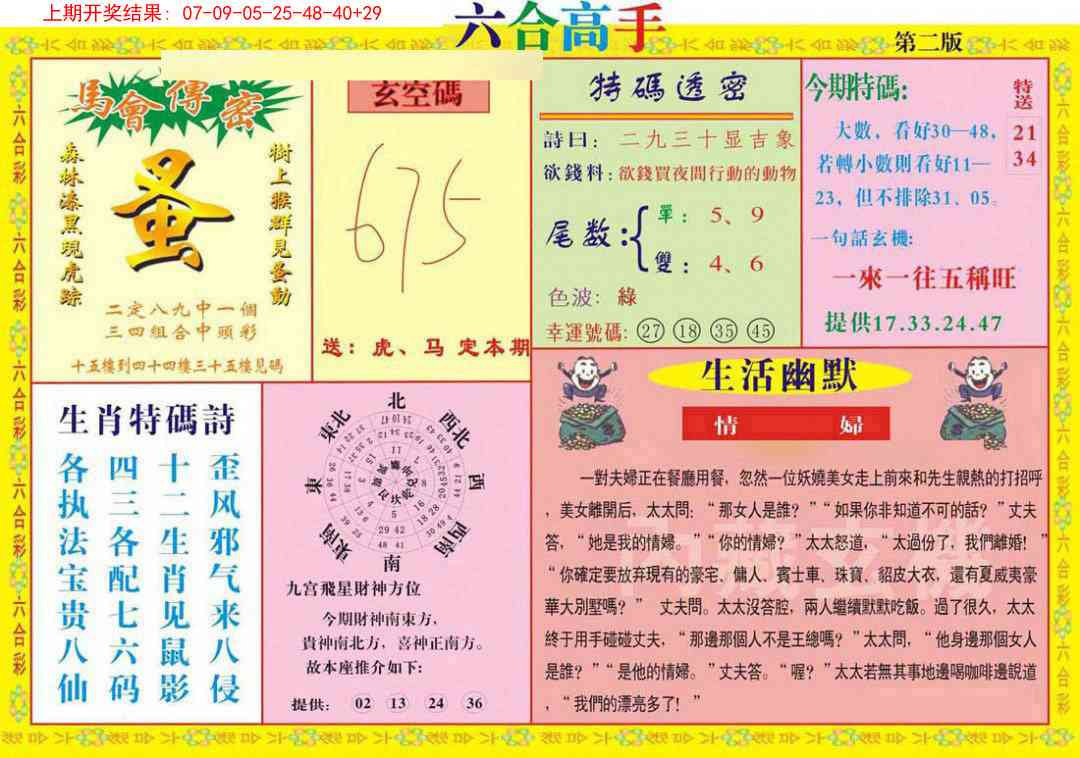 上期开奖结果：07-09-05-25-48-40+29
六合高手
第二版
馬會傳密
森林漆黑現虎踪
蚤
樹上猴群見蚤動
二定八九中一個
三四組合中頭彩
十五樓到四十四樓三十五樓見碼
玄空碼
675
送：虎、马 定本期
特碼透密
詩曰：二九三十显吉象
欲錢料：欲錢買夜間行動的動物
尾数：
單：5、9
雙：4、6
色波：綠
幸運號碼：27 18 35 45
今期特碼：
特送
21
34
大數，看好30—48，
若轉小數則看好11—
23，但不排除31、05。
一句話玄機：
一來一往五稱旺
提供17.33.24.47
生肖特碼詩
各 四 十 歪
执 三 二 风
法 各 生 邪
宝 配 肖 气
贵 七 见 来
八 六 鼠 八
仙 码 影 侵
北
東北
西北
東
西
東南
西南
南
九宫飛星財神方位
今期財神南東方，
貴神南北方，喜神正南方。
故本座推介如下：
提供：02 13 24 36
生活幽默
情 婦
一對夫婦正在餐廳用餐，忽然一位妖嬈美女走上前來和先生親熱的打招呼
，美女離開后，太太問：“那女人是誰？”“如果你非知道不可的話？”丈夫
答，“她是我的情婦。”“你的情婦？”太太怒道，“太過份了，我們離婚！”
“你確定要放弃現有的豪宅、傭人、賓士車、珠寶、貂皮大衣，還有夏威夷豪
華大別墅嗎？” 丈夫問。太太沒答腔，兩人繼續默默吃飯。過了很久，太太
終于用手碰碰丈夫，“那邊那個人不是王總嗎？”太太問，“他身邊那個女人
是誰？”“是他的情婦。”丈夫答。“喔？”太太若無其事地邊喝咖啡邊說道
，“我們的漂亮多了！”